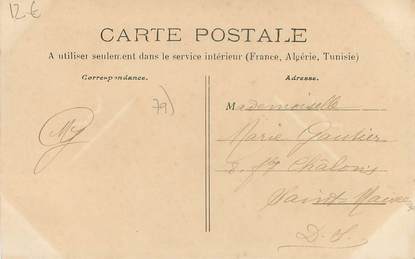 12 €
CARTE POSTALE
A utiliser seulement dans le service intérieur (France, Algérie, Tunisie)
Correspondance.
Adresse.
79)
Mademoiselle
Marie Gautier
Châlons
Saint-Maixent
D.S.